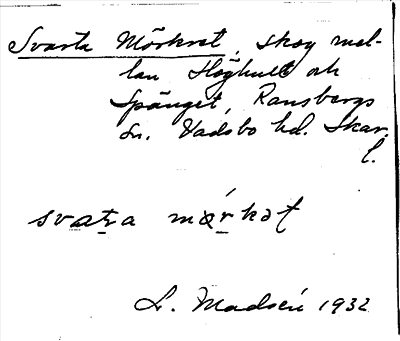 Svarta Mörkret, skog mel-
lan Höghult och
Spånget, Ransbergs
sn. Vadsbo hd. Skar.
l.
svaṯa mǿrkət
L. Madsén 1932